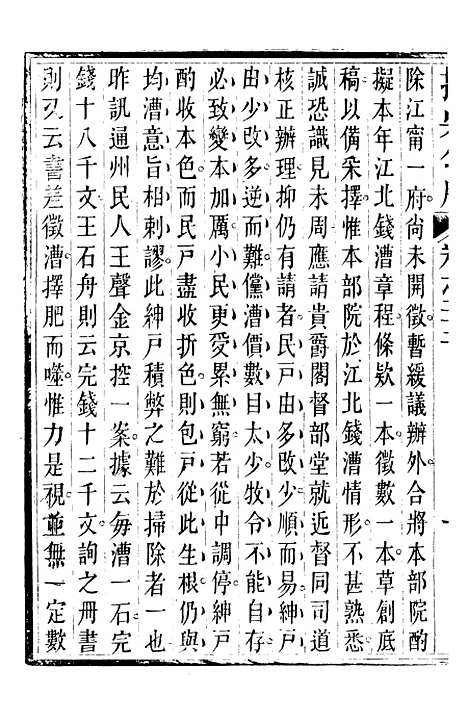 撫吳公牘
卷三十三
除江甯一府尚未開徵暫緩議辦外合將本部院酌
擬本年江北錢漕章程條欵一本徵數一本草創底
稿以備采擇惟本部院於江北錢漕情形不甚熟悉
誠恐識見未周應請貴爵閣督部堂就近督同司道
核正辦理抑仍有請者民戸由多改少順而易紳戸
由少改多逆而難儻漕價數目太少牧令不能自存
必致變本加厲小民更受累無窮若從中調停紳戸
酌收本色而民戸盡收折色則包戸從此生根仍與
均漕意旨相剌謬此紳戸積弊之難於掃除者一也
昨訊通州民人王聲金京控一案據云每漕一石完
錢十八千文王石舟則云完錢十二千文詢之冊書
則又云書差徵漕擇肥而噬惟力是視並無一定數